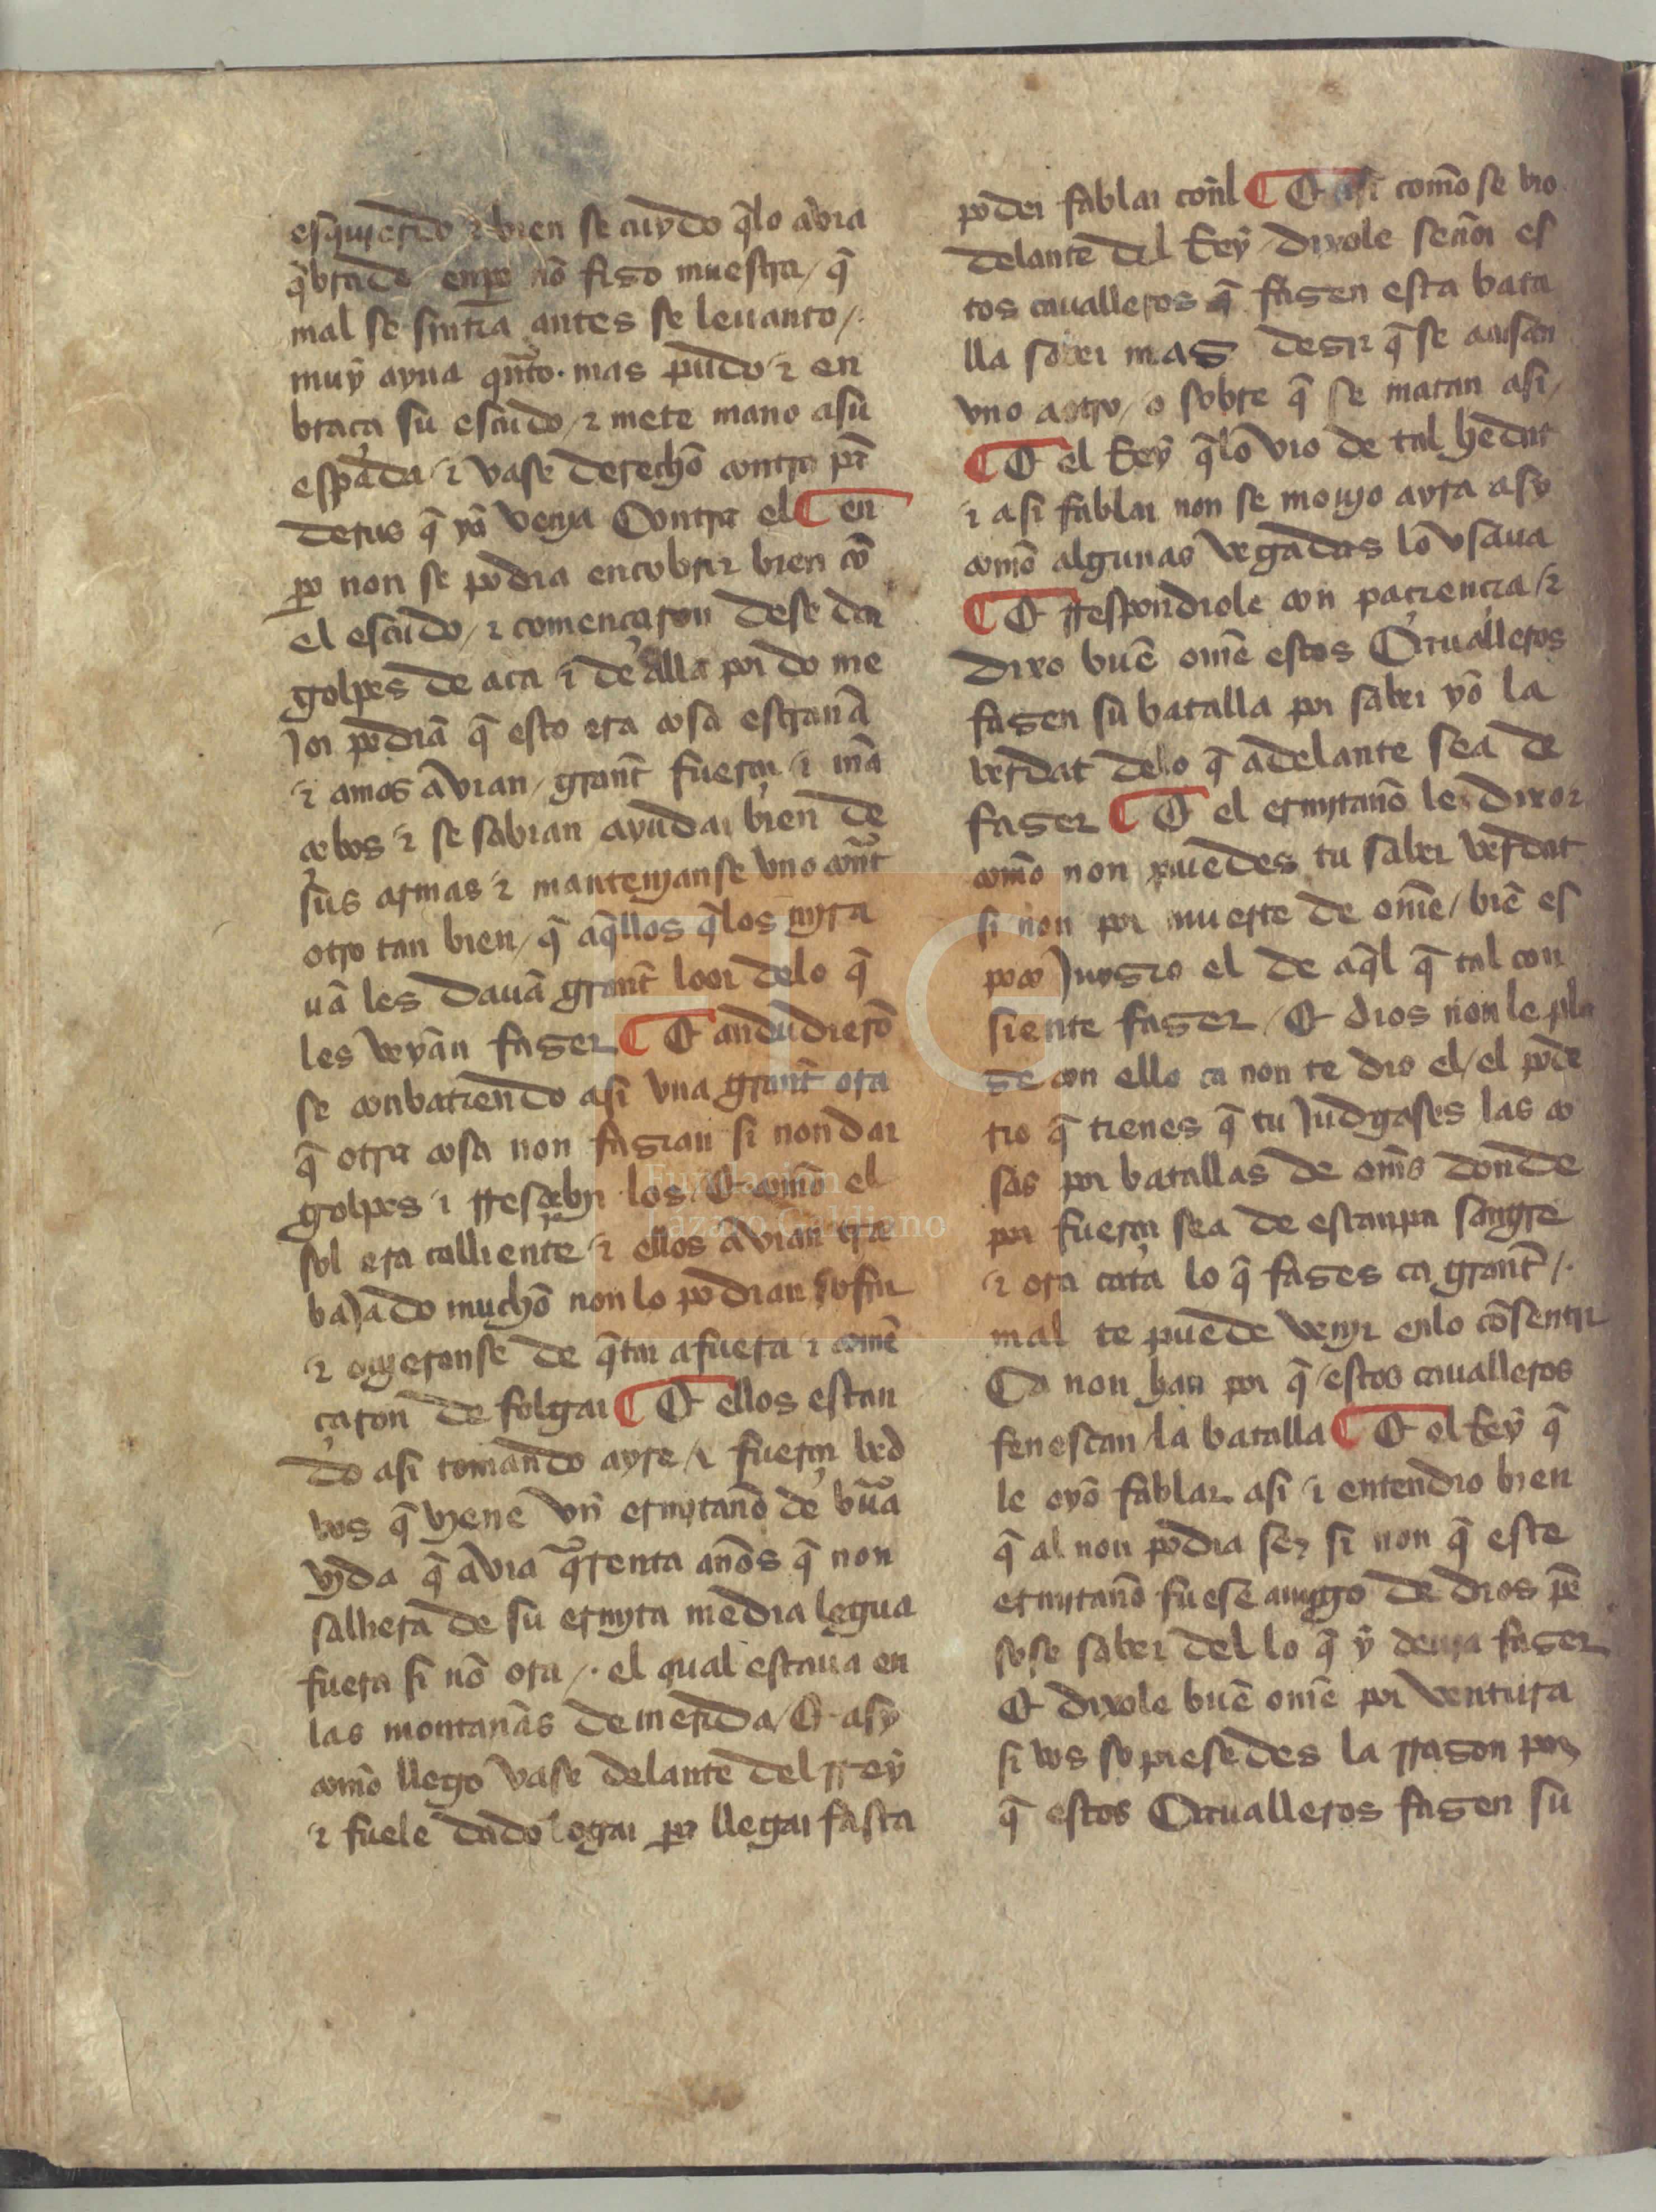 esq̃uierdo ⁊ bien se cuydo q̃lo avria
q̃brado enpo nõ fizo muestra / q̃
mal se sintia antes se leuanto /.
muy ayna qnto mas pudo ⁊ en
braça su escudo / ⁊ mete mano asu
espada / ⁊ vase derechõ contra pr̃
detus q̃ yã venja Contra el ¶ en
po non se podia encobrir bien cõ
el escudo / ⁊ començaron dese dar
golpes de aca ⁊ de alla por do me
jor podiã q̃ esto era cosa estranã
⁊ amos avian / grant̃ fuerça ⁊ mã
çebos ⁊ se sabian ayudar bien de
sus armas ⁊ mantenjanse vno cont̃
otro tan bien / q̃ aq̃llos q̃los mjra
uã les dauã grant̃ loor delo q̃
les veyãn fazer ¶ Et andudierõ
se conbatiendo asi vna grant̃ ora
q̃ otra cosa non fazian si non dar
golpes ⁊ rresçebjr los Et comõ el
sol era calliente ⁊ ellos avian tra
bajado muchõ non lo podian sofrir
⁊ ovjeronse de q̃tar afuera ⁊ comẽ
çaron de folgar ¶ Et ellos estan
do asi tomando ayre / ⁊ fuerça hed
vos q̃ vjene vñ ermjtanõ de buẽa
vjda q̃ avia q̃renta anõs q̃ non
salliera de su ermjta media legua
fuera si nõ ora /. el qual estaua en
las montanãs de merida / Et asy
comõ llego vase delante del rrey
⁊ fuele dado logar por llegar fasta
poder fablar conl ¶ Et asi comõ se vio
delante del Rey / dixole señor es
tos caualleros q̃ fazen esta bata
lla sober mas dezir q̃ se ausan
vno aotro / o sobre q̃ se matan asi /
¶ Et el Rey q̃lo vio de tal hedat
⁊ asi fablar non se mouio ayra asy
comõ algunas vegadas lo vsaua
¶ Et rrespondiole con paçiençia / ⁊
dixo buẽ omẽ estos Caualleros
fazen su batalla por saber yo la
verdat delo q̃ adelante sea de
fazer ¶ Et el ermjtanõ le dixo ⁊
comõ non puedes tu saber verdat
si non por muerte de omẽ / biẽ es
poco Juyzio el de aq̃l q̃ tal con
siente fazer / Et dios non le pla
ze con ello ca non te dio el / el pode
rio q̃ tienes q̃ tu Judgases las co
sas por batallas de oms̃ donde
por fuerça sea de esparzer sangre
⁊ ora cata lo q̃ fazes ca grant̃ /.
mal te puede venjr enlo cõsentir
Ca non han por q̃ / estos caualleros
fenescan / la batalla ¶ Et el Rey q̃
le oyõ fablar asi ⁊ entendio bien
q̃ al non podia ser si non q̃ este
ermjtanõ fuese amjgo de dios pẽ
sose saber del lo q̃ y deuja fazer
Et dixole buẽ omẽ por ventura
si vos sopiesedes la rrazon por
q̃ estos Caualleros fazen su